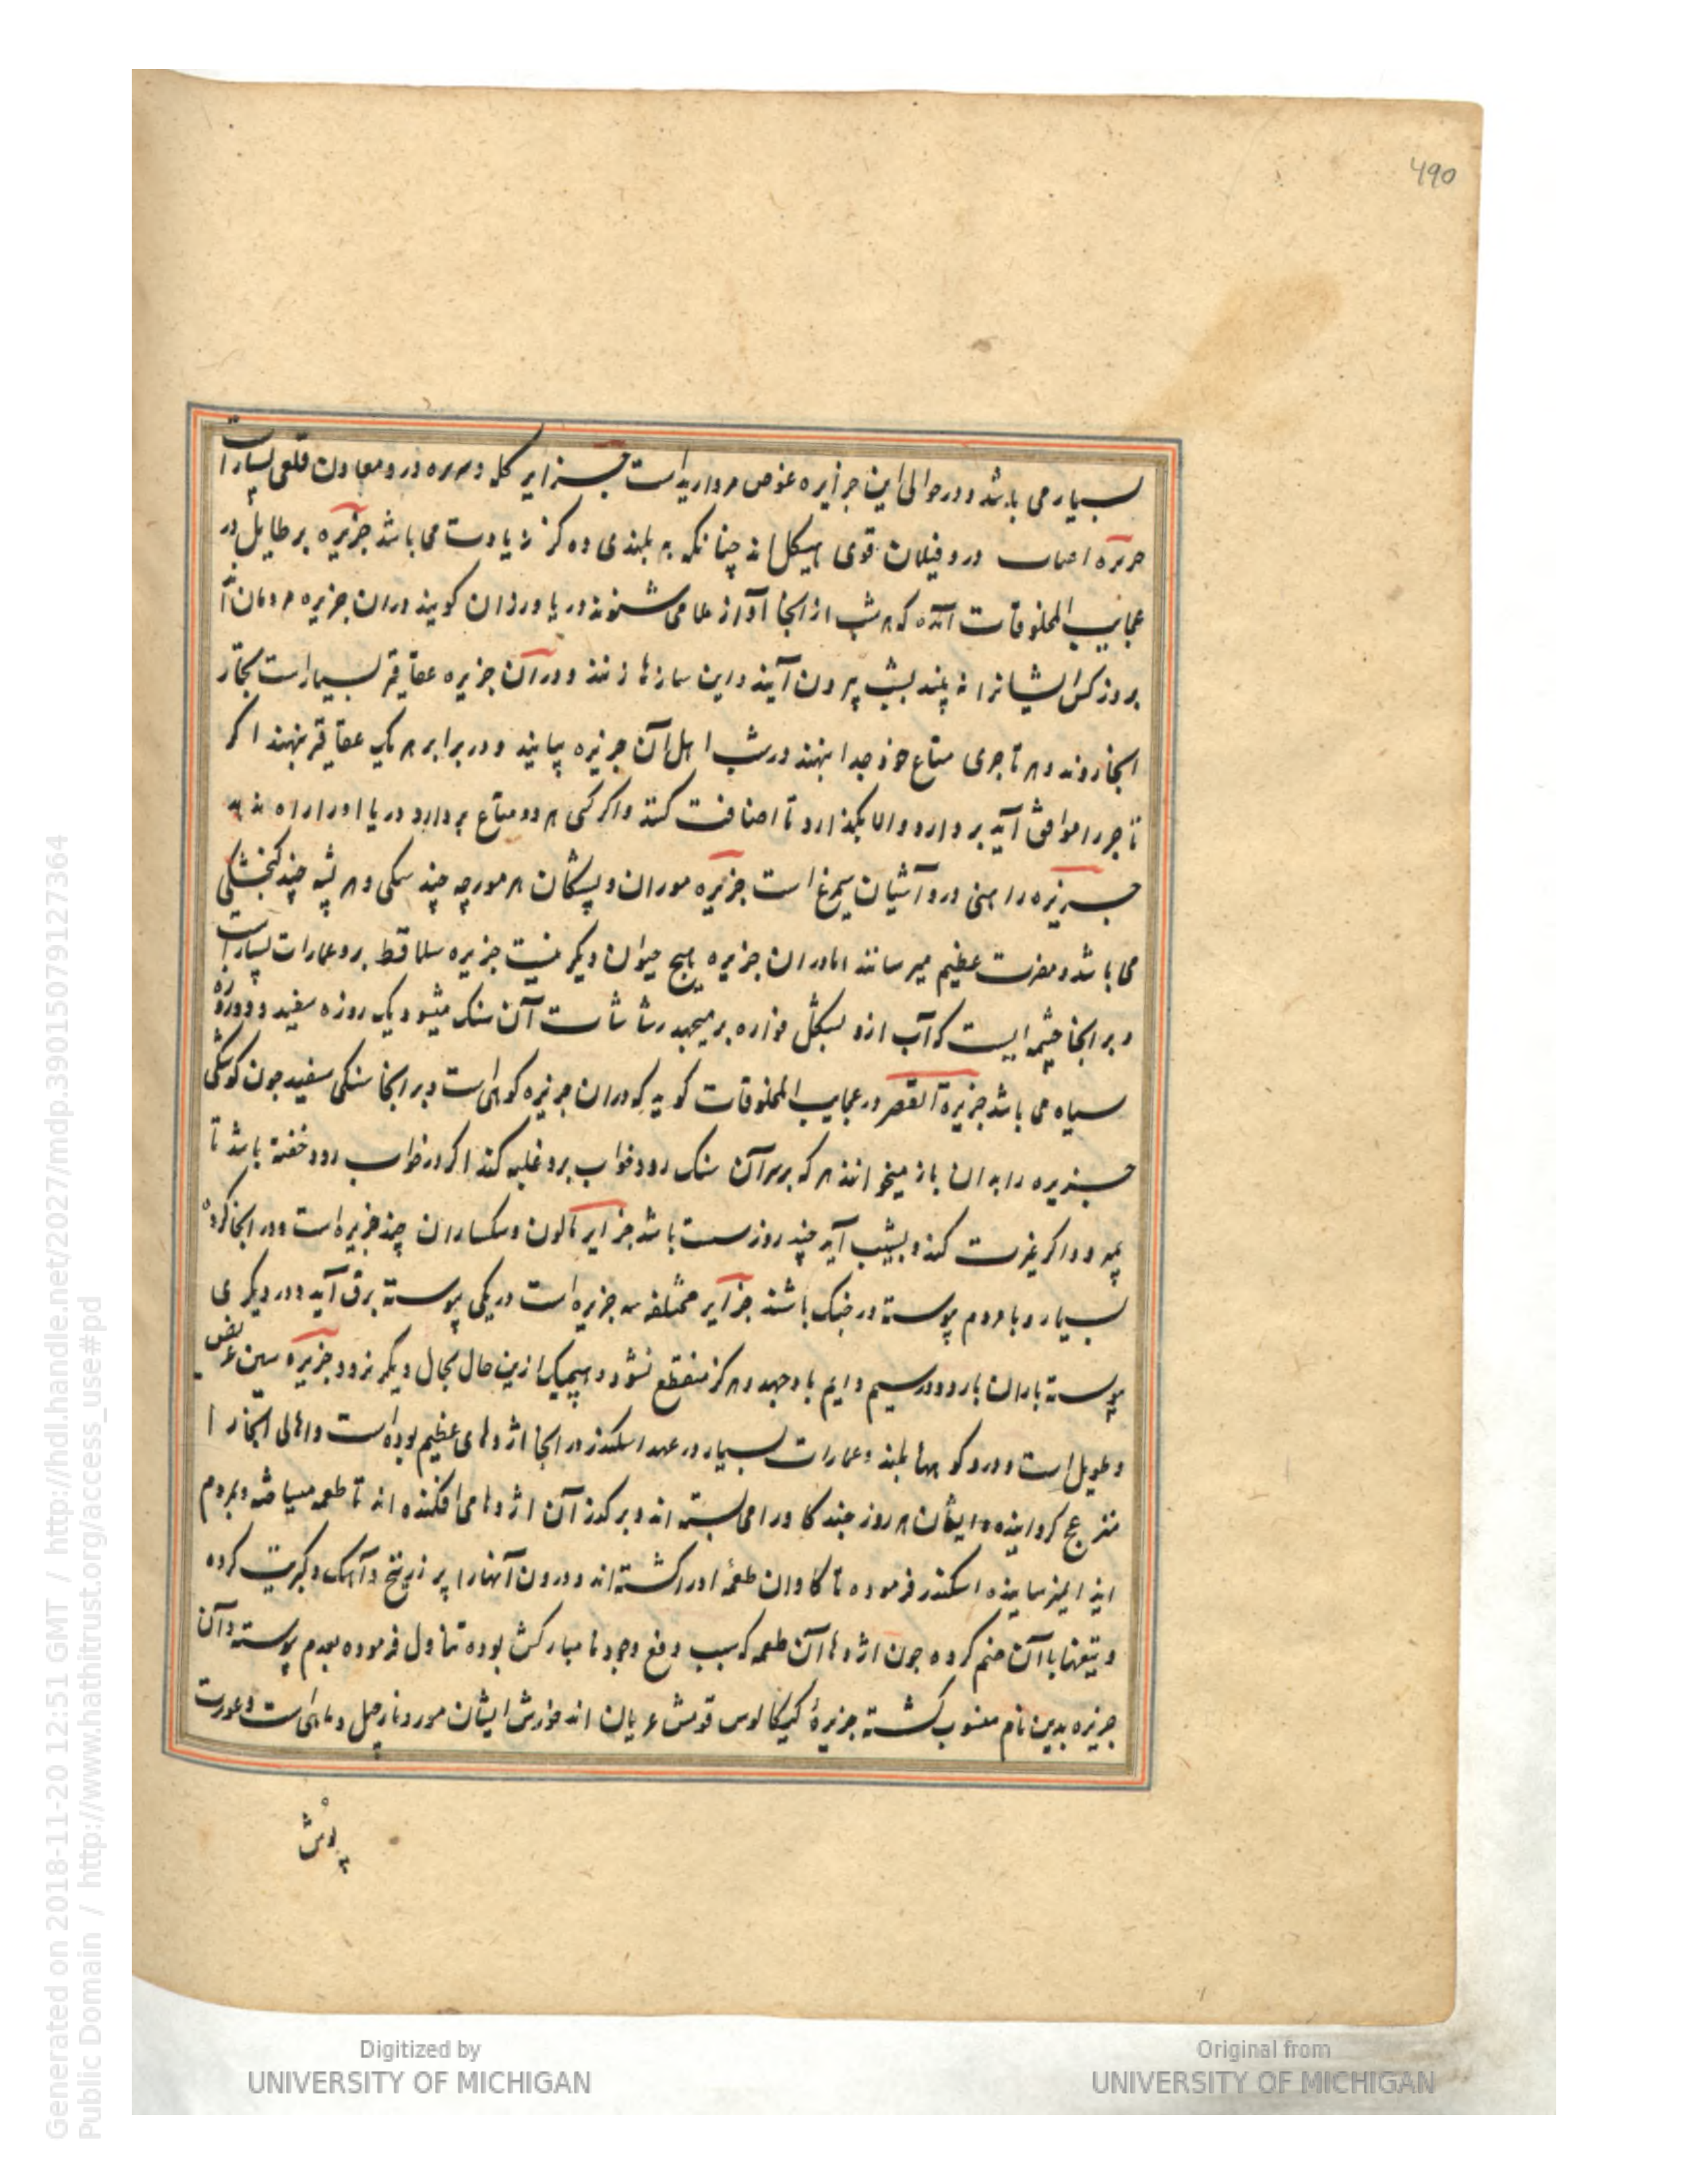 490
بسیار می باشد و در حوالی این جزایره غوص مروارید است جزایر کله و سریره درو معادن قلعی بسیار است
جزیره درو فیلان قوی هیکل اند چنانکه به بلندی ده کز زیادت می باشد جزیره برطایل در
عجایب المخلوقات آمده که هر شب از انجا آواز ها می شنوند دریا ورزان کویند دران جزیره مردمان اند
بروز کس ایشانرا نه بیند بشب بیرون آیند و این سازها زنند و در آن جزیره عقاقیر بسیار است تجار
انجا روند و هر تاجری متاع خود جدا بنهند در شب اهل آن جزیره بیایند و در برابر هر یک عقاقیر بنهند اکر
تاجر را موافق آید بردارد و الا بکذارد تا اضافت کنند و اکر کسی هر دو متاع بردارد دریا او را راه ندهد
جزیره رامنی درو آشیان سیمرغ است جزیره موران و پشکان هر مورچه چند سکی و هر پشه چند کنجشکی
می باشد و مضرت عظیم میرسانند اما دران جزیره هیچ حیوان دیکر نیست جزیره سلاقط برو عمارات بسیار است
و بر انجا چشمه ایست که آب ازو بشکل فواره بر میجهد رشاشات آن سنک میشود یک روزه سفید و دوروزه
سیاه می باشد جزیرة القصر در عجایب المخلوقات کوید که دران جزیره کوهی است و بر انجا سنکی سفید چون کوشکی
جزیره را بدان باز میخوانند هر که بر سر آن سنک رود خواب برو غلبه کند اکر در خواب رود خفته باشد تا
بمیرد و اکر عزیمت کند و بشیب آید چند روز سست باشد جزایر مالون و سکساران چند جزیره است و در انجا کروه
بسیار و با مردم پیوسته در جنک باشند جزایر مختلفه سه جزیره است در یکی پیوسته برق آید و در دیکری
پیوسته باران بارد و در سیم دایم باد جهد و هرکز منقطع نشود و هیچیک ازین حال بحال دیکر نرود جزیره تنین عریض
و طویل است و درو کوهها بلند و عمارات بسیار در عهد اسکندر در انجا اژدهای عظیم بوده است و اهالی انجا را
منزعج کردانیده ایشان هر روز چند کاو را می بسته اند و بر کذر آن اژدها می افکنده اند تا طعمه میساخته و بمردم
ایذا نمیرسانیده اسکندر فرموده تا کاوان طعمه او را کشته اند و درون آنها را پر زرنیخ و آهک و کبریت کرده
و تیغها با آن ضم کرده چون اژدها آن طعمه که سبب دفع وجود نا مبارکش بوده تناول فرموده بعدم پیوسته و آن
جزیره بدین نام منسوب کشته جزیرهٔ کیکالوس قومش عریان اند خورش ایشان موز و نارجیل و ماهی است و عورت
پوش
Digitized by
UNIVERSITY OF MICHIGAN
Original from
UNIVERSITY OF MICHIGAN
Generated on 2018-11-20 12:51 GMT / http://hdl.handle.net/2027/mdp.39015079127364
Public Domain / http://www.hathitrust.org/access_use#pd